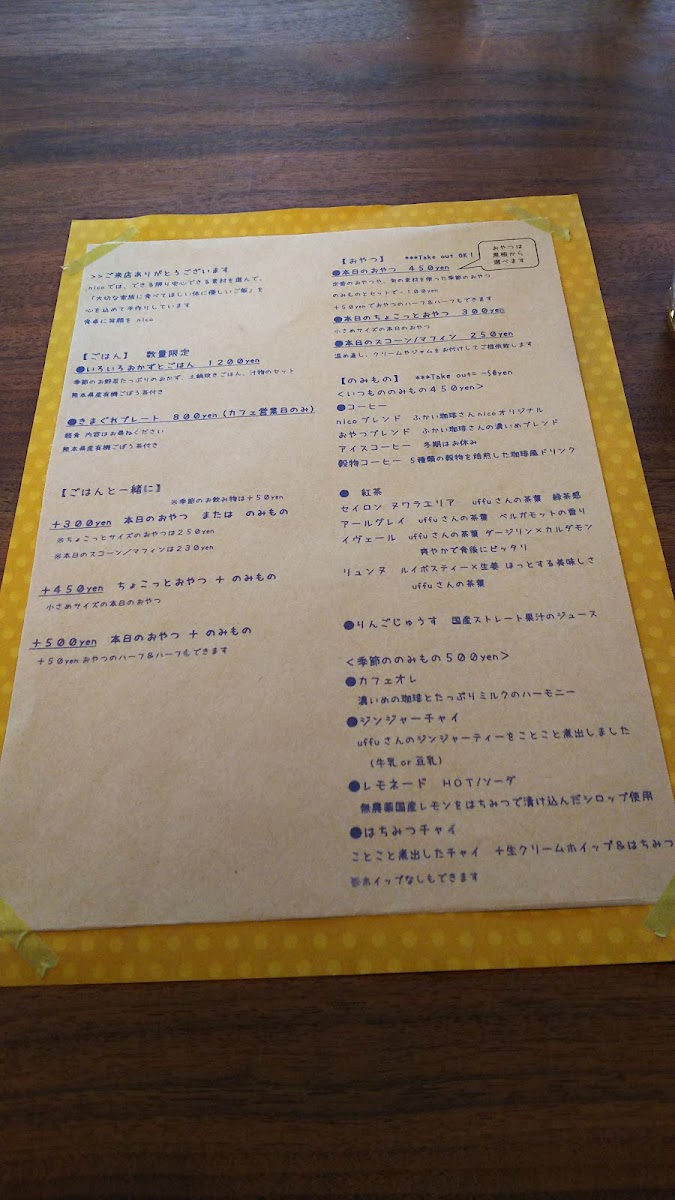 >>ご来店ありがとうございます
nicoでは、できる限り安心できる素材を選んで、
「大切な家族に食べてほしい体に優しいご飯」を
心を込めて手作りしています
食卓に笑顔を nico
【ごはん】 数量限定
●いろいろおかずとごはん 1200yen
季節のお野菜たっぷりのおかず、土鍋炊きごはん、汁物のセット
熊本県産有機ごぼう茶付き
●きまぐれプレート 800yen(カフェ営業日のみ)
軽食 内容はお尋ねください
熊本県産有機ごぼう茶付き
【ごはんと一緒に】
※季節のお飲み物は+50yen
+300yen 本日のおやつ または のみもの
※ちょこっとサイズのおやつは250yen
※本日のスコーン/マフィンは230yen
+450yen ちょこっとおやつ + のみもの
小さめサイズの本日のおやつ
+500yen 本日のおやつ + のみもの
+50yen おやつのハーフ&ハーフもできます
【おやつ】 ***Take out OK!
おやつは
黒板から
選べます
●本日のおやつ 450yen
定番のおやつや、旬の素材を使った季節のおやつ
のみものとセットで-100yen
+50yenでおやつのハーフ&ハーフもできます
●本日のちょこっとおやつ 300yen
小さめサイズの本日のおやつ
●本日のスコーン/マフィン 250yen
温め直し、クリームやジャムをお付けしてご提供致します
【のみもの】 ***Take out= -50yen
<いつもののみもの450yen>
●コーヒー
nicoブレンド ふかい珈琲さんnicoオリジナル
おやつブレンド ふかい珈琲さんの濃いめブレンド
アイスコーヒー 冬期はお休み
穀物コーヒー 5種類の穀物を焙煎した珈琲風ドリンク
● 紅茶
セイロン ヌワラエリア uffuさんの茶葉 緑茶感
アールグレイ uffuさんの茶葉 ベルガモットの香り
イヴェール uffuさんの茶葉 ダージリン×カルダモン
爽やかで食後にピッタリ
リュンヌ ルイボスティー×生姜 ほっとする美味しさ
uffuさんの茶葉
●りんごじゅうす 国産ストレート果汁のジュース
<季節ののみもの500yen>
●カフェオレ
濃いめの珈琲とたっぷりミルクのハーモニー
●ジンジャーチャイ
uffuさんのジンジャーティーをことこと煮出しました
(牛乳or豆乳)
●レモネード HOT/ソーダ
無農薬国産レモンをはちみつで漬け込んだシロップ使用
●はちみつチャイ
ことこと煮出したチャイ +生クリームホイップ&はちみつ
※ホイップなしもできます